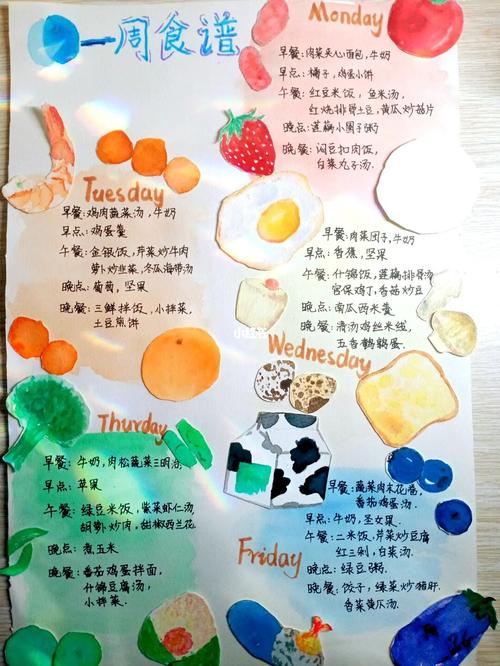 一周食谱
Monday
早餐:肉菜夹心面包,牛奶
早点:橘子,鸡蛋小饼
午餐:红豆米饭,鱼米汤,
红烧排骨土豆,黄瓜炒菇片
晚点:莲藕小圆子粥
晚餐:闷豆扣肉饭,
白菜丸子汤.
Tuesday
早餐:鸡肉蔬菜汤,牛奶
早点:鸡蛋羹
午餐:金银饭,芹菜炒牛肉
萝卜炒韭菜,冬瓜海带汤
晚点:葡萄,坚果
晚餐:三鲜拌饭,小拌菜,
土豆煎饼
早餐:肉菜团子,牛奶
早点:香蕉,坚果
午餐:什锦饭,莲藕排骨汤
宫保鸡丁,香菇炒豆
晚点:南瓜西米羹
晚餐:清汤鸡丝米线,
五香鹌鹑蛋.
Wednesday
小红书
Thurday
早餐:牛奶,肉松蔬菜三明治
早点:苹果
午餐:绿豆米饭,紫菜虾仁汤
胡萝卜炒肉,甜椒西兰花
晚点:煮玉米
晚餐:番茄鸡蛋拌面,
什锦豆腐汤,
小拌菜.
早餐:蔬菜肉末花卷,
番茄鸡蛋汤.
早点:牛奶,圣女果.
午餐:二米饭,芹菜炒豆腐
红三剁,白菜汤.
Friday
晚点:绿豆粥.
晚餐:饺子,绿菜炒猪肝
香菜黄瓜汤.